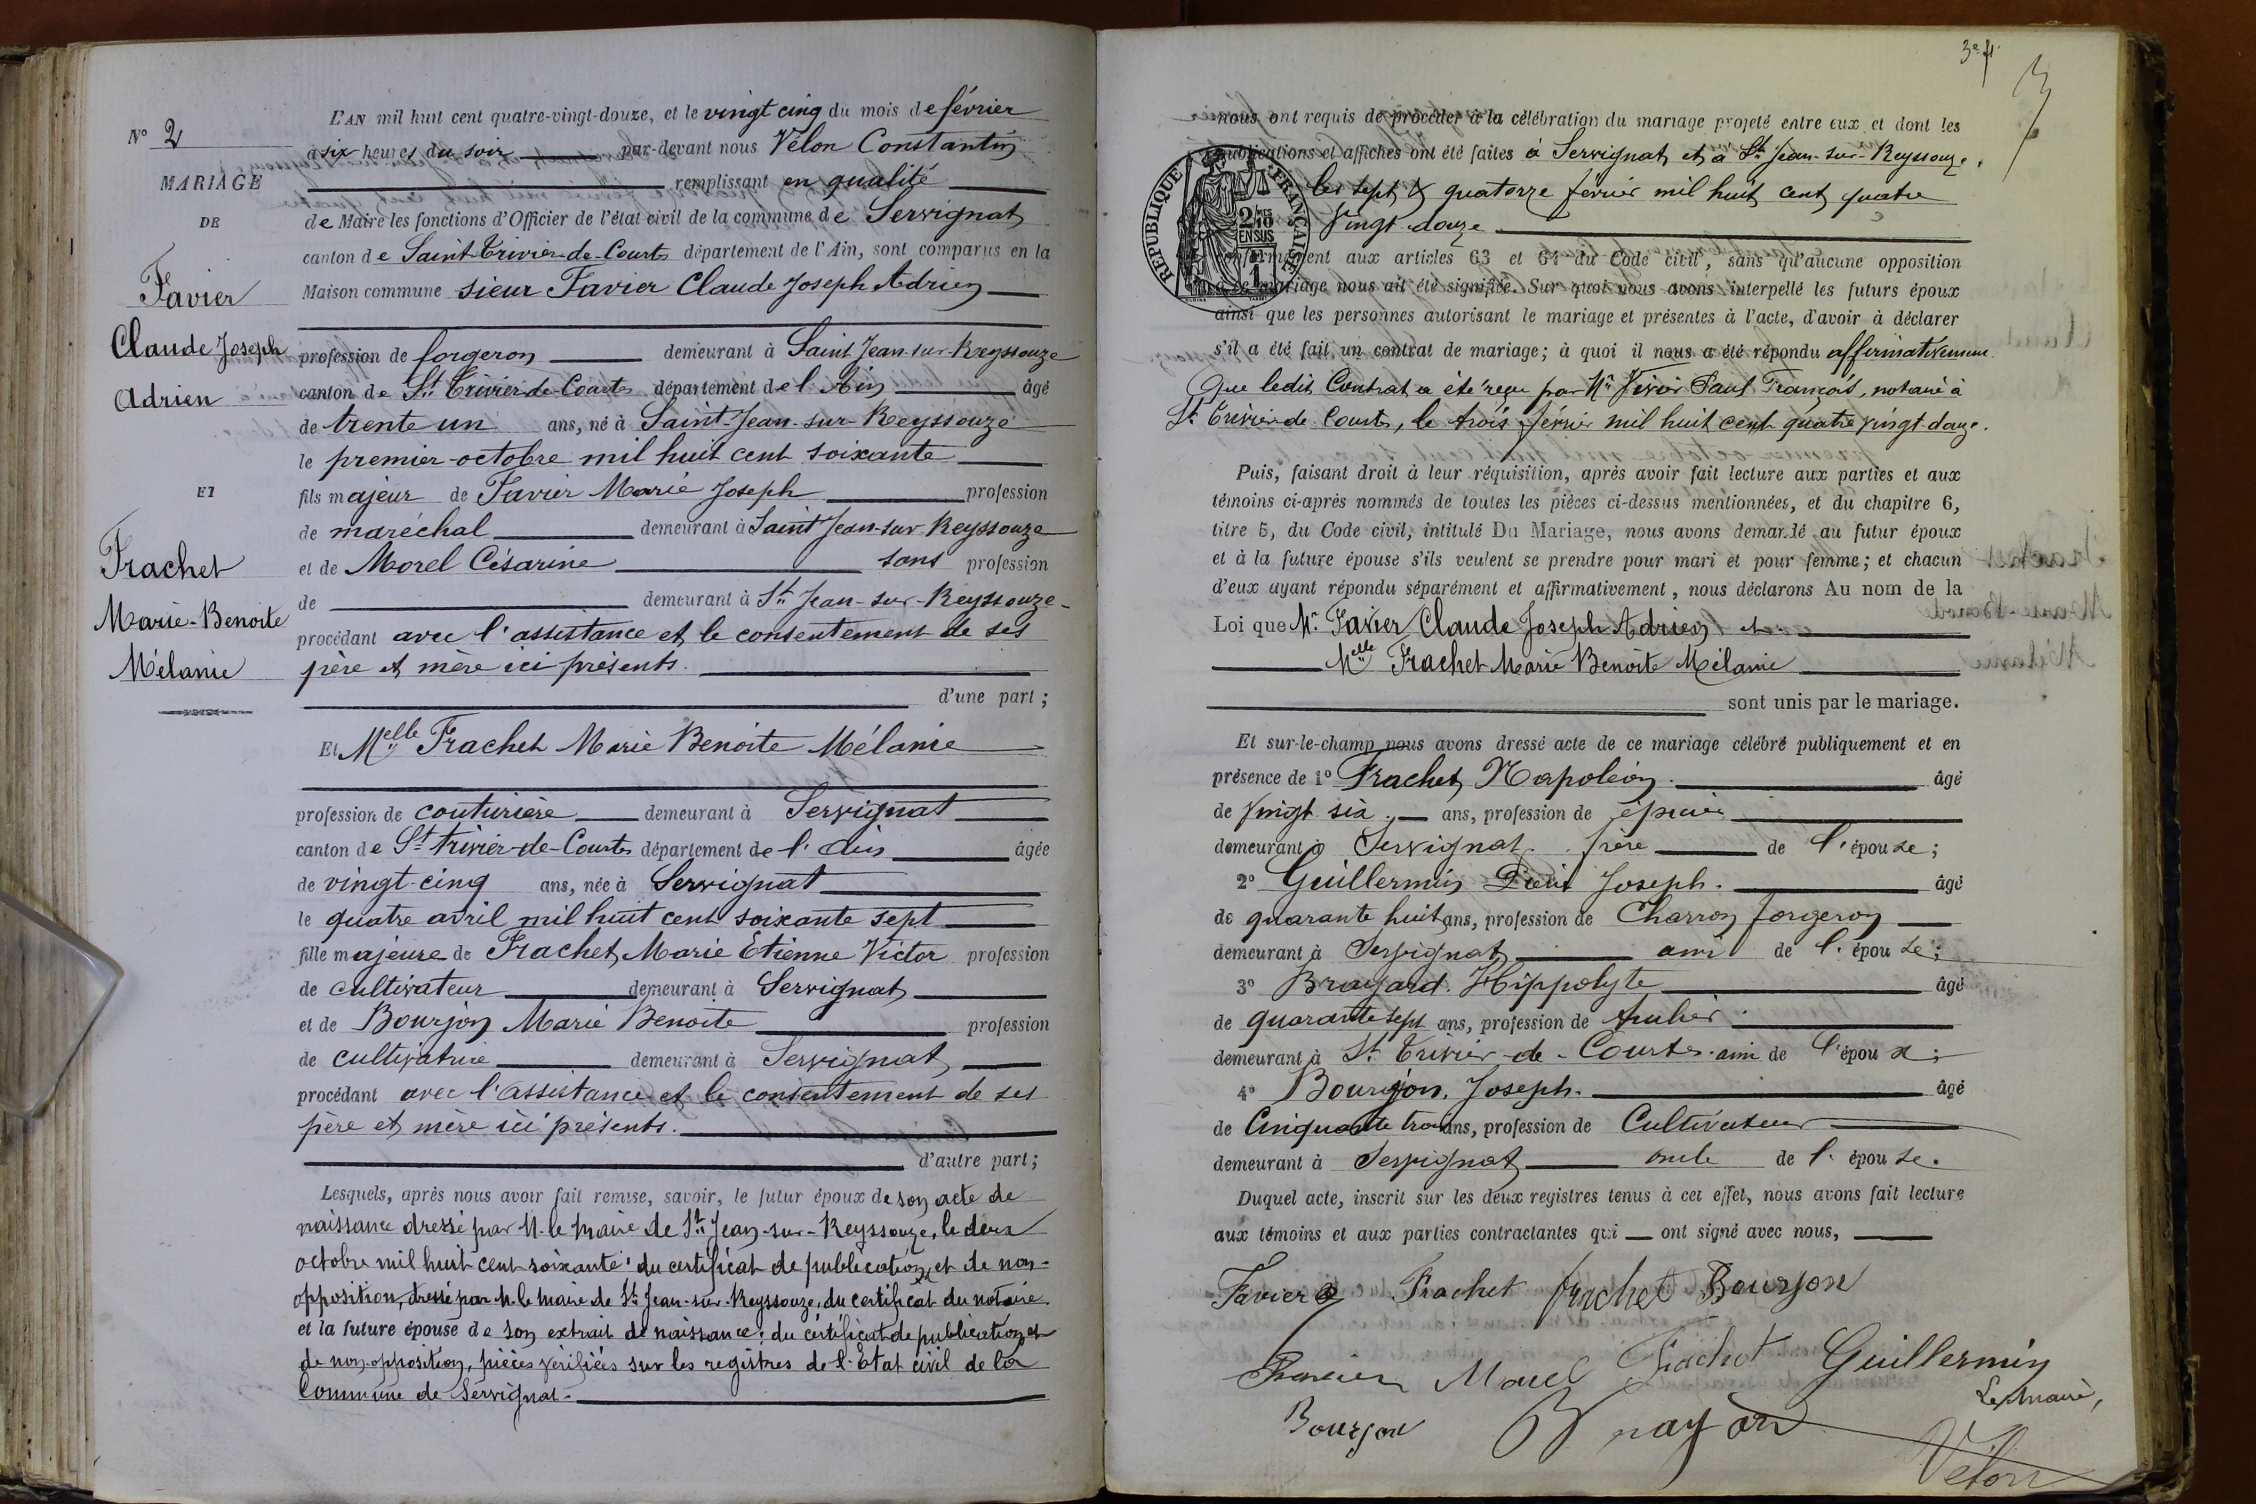 N° 2
MARIAGE
DE
Favier
Claude Joseph
Adrien
ET
Frachet
Marie-Benoite
Mélanie
L'AN mil huit cent quatre-vingt-douze, et le vingt cinq du mois de février
à six heures du soir par-devant nous Vélon Constantin
remplissant en qualité
de Maire les fonctions d'Officier de l'état civil de la commune de Servignat
canton de Saint-Trivier-de-Courtes département de l'Ain, sont comparus en la
Maison commune sieur Favier Claude Joseph Adrien
profession de forgeron demeurant à Saint Jean-sur-Reyssouze
canton de St Trivier-de-Courtes département de l'Ain âgé
de trente un ans, né à Saint-Jean-sur-Reyssouze
le premier octobre mil huit cent soixante
fils majeur de Favier Marie Joseph profession
de maréchal demeurant à Saint Jean-sur-Reyssouze
et de Morel Césarine sans profession
de demeurant à St Jean-sur-Reyssouze
procédant avec l'assistance et le consentement de ses
père et mère ici présents.
d'une part ;
Et Melle Frachet Marie Benoite Mélanie
profession de couturière demeurant à Servignat
canton de St trivier-de-Courtes département de l'Ain âgée
de vingt-cinq ans, née à Servignat
le quatre avril mil huit cent soixante sept
fille majeure de Frachet Marie Etienne Victor profession
de cultivateur demeurant à Servignat
et de Bourjon Marie Benoite profession
de cultivatrice demeurant à Servignat
procédant avec l'assistance et le consentement de ses
père et mère ici présents.
d'autre part ;
Lesquels, après nous avoir fait remise, savoir, le futur époux de son acte de
naissance dressé par M. le Maire de St Jean-sur-Reyssouze, le deux
octobre mil huit cent soixante ; du certificat de publication et de non-
opposition, dressé par M. le maire de St Jean-sur-Reyssouze, du certificat du notaire
et la future épouse de son extrait de naissance ; du certificat de publication et
de non-opposition, pièces vérifiées sur les registres de l'Etat civil de la
Commune de Servignat.
3e f.
RÉPUBLIQUE FRANÇAISE
2/10 EN SUS
nous ont requis de procéder à la célébration du mariage projeté entre eux et dont les
publications et affiches ont été faites à Servignat et à St Jean-sur-Reyssouze,
les sept & quatorze février mil huit cent quatre
Vingt douze
conformément aux articles 63 et 64 du Code civil, sans qu'aucune opposition
à ce mariage nous ait été signifiée. Sur quoi nous avons interpellé les futurs époux
ainsi que les personnes autorisant le mariage et présentes à l'acte, d'avoir à déclarer
s'il a été fait un contrat de mariage ; à quoi il nous a été répondu affirmativement
Que ledit Contrat a été reçu par Me Paul François, notaire à
St Trivier de Courtes, le trois février mil huit cent quatre vingt douze.
Puis, faisant droit à leur réquisition, après avoir fait lecture aux parties et aux
témoins ci-après nommés de toutes les pièces ci-dessus mentionnées, et du chapitre 6,
titre 5, du Code civil, intitulé Du Mariage, nous avons demandé au futur époux
et à la future épouse s'ils veulent se prendre pour mari et pour femme ; et chacun
d'eux ayant répondu séparément et affirmativement, nous déclarons Au nom de la
Loi que Mr Favier Claude Joseph Adrien et
Melle Frachet Marie Benoite Mélanie
sont unis par le mariage.
Et sur-le-champ nous avons dressé acte de ce mariage célébré publiquement et en
présence de 1° Frachet Napoléon. âgé
de vingt six ans, profession de épicier
demeurant à Servignat frère de l'épouse ;
2° Guillermin Joseph. âgé
de quarante huit ans, profession de Charron forgeron
demeurant à Servignat ami de l'épouse ;
3° Brayard Hippolyte âgé
de quarante sept ans, profession de
demeurant à St Trivier-de-Courtes ami de l'époux ;
4° Bourjon Joseph. âgé
de Cinquante trois ans, profession de Cultivateur
demeurant à Servignat oncle de l'épouse.
Duquel acte, inscrit sur les deux registres tenus à cet effet, nous avons fait lecture
aux témoins et aux parties contractantes qui ont signé avec nous,
Favier a Frachet frachet Bourjon
Morel Frachet Guillermin
Le Maire,
Bourjon Brayard
Vélon